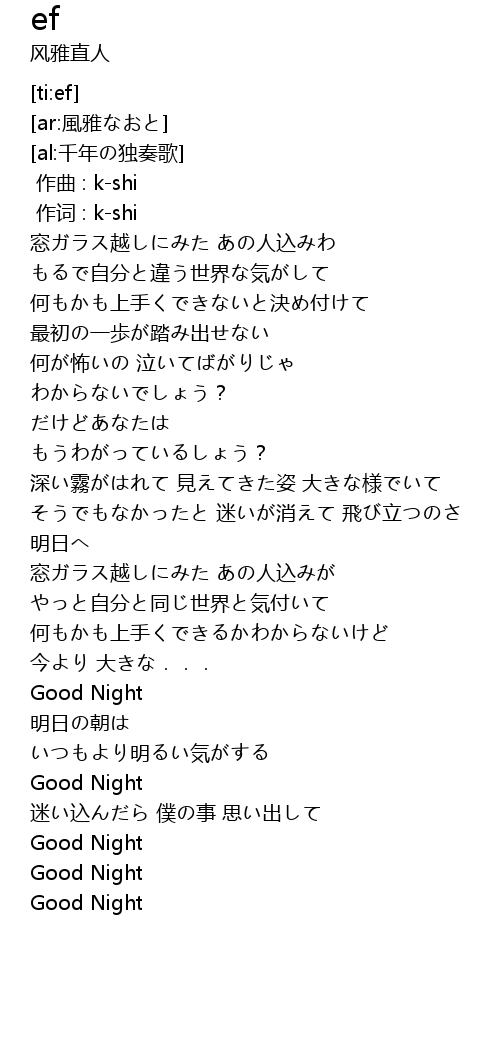 ef
风雅直人
[ti:ef]
[ar:風雅なおと]
[al:千年の独奏歌]
作曲 : k-shi
作词 : k-shi
窓ガラス越しにみた あの人込みわ
もるで自分と違う世界な気がして
何もかも上手くできないと決め付けて
最初の一歩が踏み出せない
何が怖いの 泣いてばがりじゃ
わからないでしょう？
だけどあなたは
もうわがっているしょう？
深い霧がはれて 見えてきた姿 大きな様でいて
そうでもなかったと 迷いが消えて 飛び立つのさ
明日へ
窓ガラス越しにみた あの人込みが
やっと自分と同じ世界と気付いて
何もかも上手くできるかわからないけど
今より 大きな．．．
Good Night
明日の朝は
いつもより明るい気がする
Good Night
迷い込んだら 僕の事 思い出して
Good Night
Good Night
Good Night